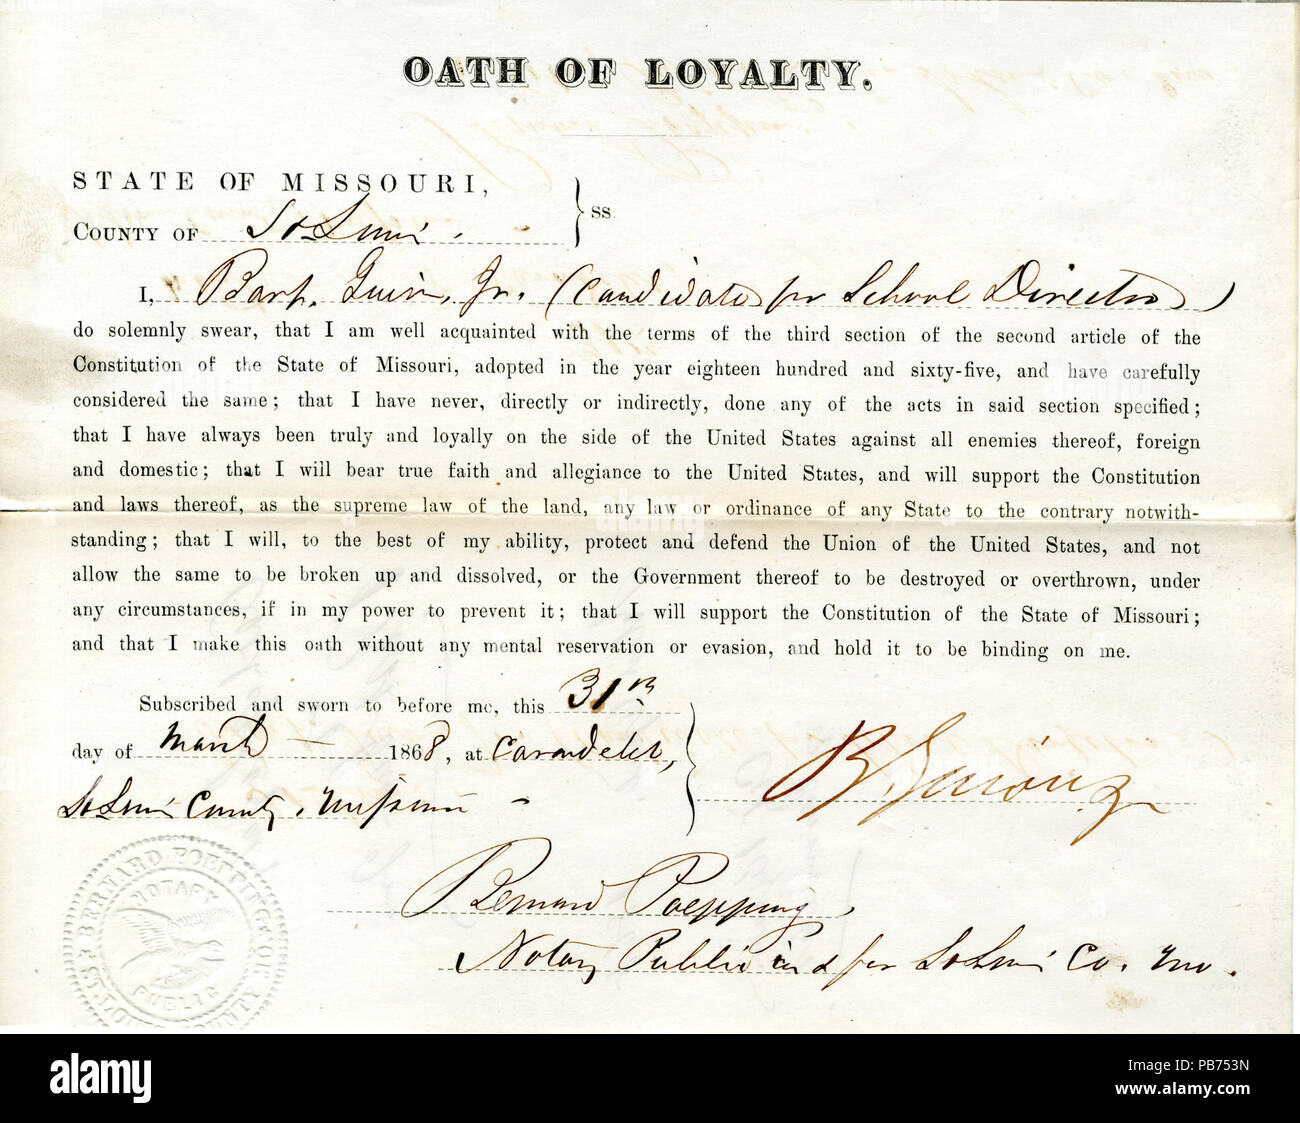 OATH OF LOYALTY.
STATE OF MISSOURI,
COUNTY OF St Louis.
} ss.
I, Bart. Guion, Jr. (Candidate for School Director)
do solemnly swear, that I am well acquainted with the terms of the third section of the second article of the
Constitution of the State of Missouri, adopted in the year eighteen hundred and sixty-five, and have carefully
considered the same; that I have never, directly or indirectly, done any of the acts in said section specified;
that I have always been truly and loyally on the side of the United States against all enemies thereof, foreign
and domestic; that I will bear true faith and allegiance to the United States, and will support the Constitution
and laws thereof, as the supreme law of the land, any law or ordinance of any State to the contrary notwith-
standing; that I will, to the best of my ability, protect and defend the Union of the United States, and not
allow the same to be broken up and dissolved, or the Government thereof to be destroyed or overthrown, under
any circumstances, if in my power to prevent it; that I will support the Constitution of the State of Missouri;
and that I make this oath without any mental reservation or evasion, and hold it to be binding on me.
Subscribed and sworn to before me, this 31st
day of March 1868, at Carondelet,
St Louis County, Missouri
B. Guion Jr
Bernard Poepping,
Notary Public in & for St Louis Co. Mo.
BERNARD POEPPING
NOTARY
PUBLIC
ST. LOUIS COUNTY
alamy
alamy
Image ID: PB753N
www.alamy.com